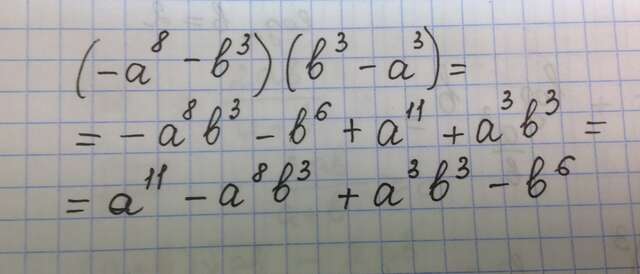 (-a⁸ - b³)(b³ - a³) =
= -a⁸b³ - b⁶ + a¹¹ + a³b³ =
= a¹¹ - a⁸b³ + a³b³ - b⁶